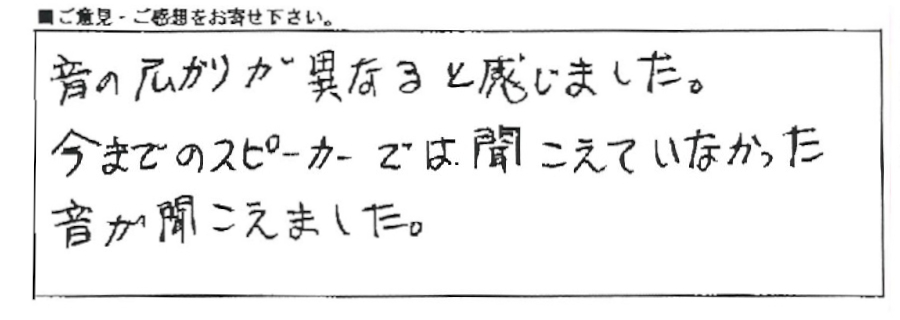 ■ご意見・ご感想をお寄せ下さい。
音の広がりが異なると感じました。
今までのスピーカーでは聞こえていなかった
音が聞こえました。